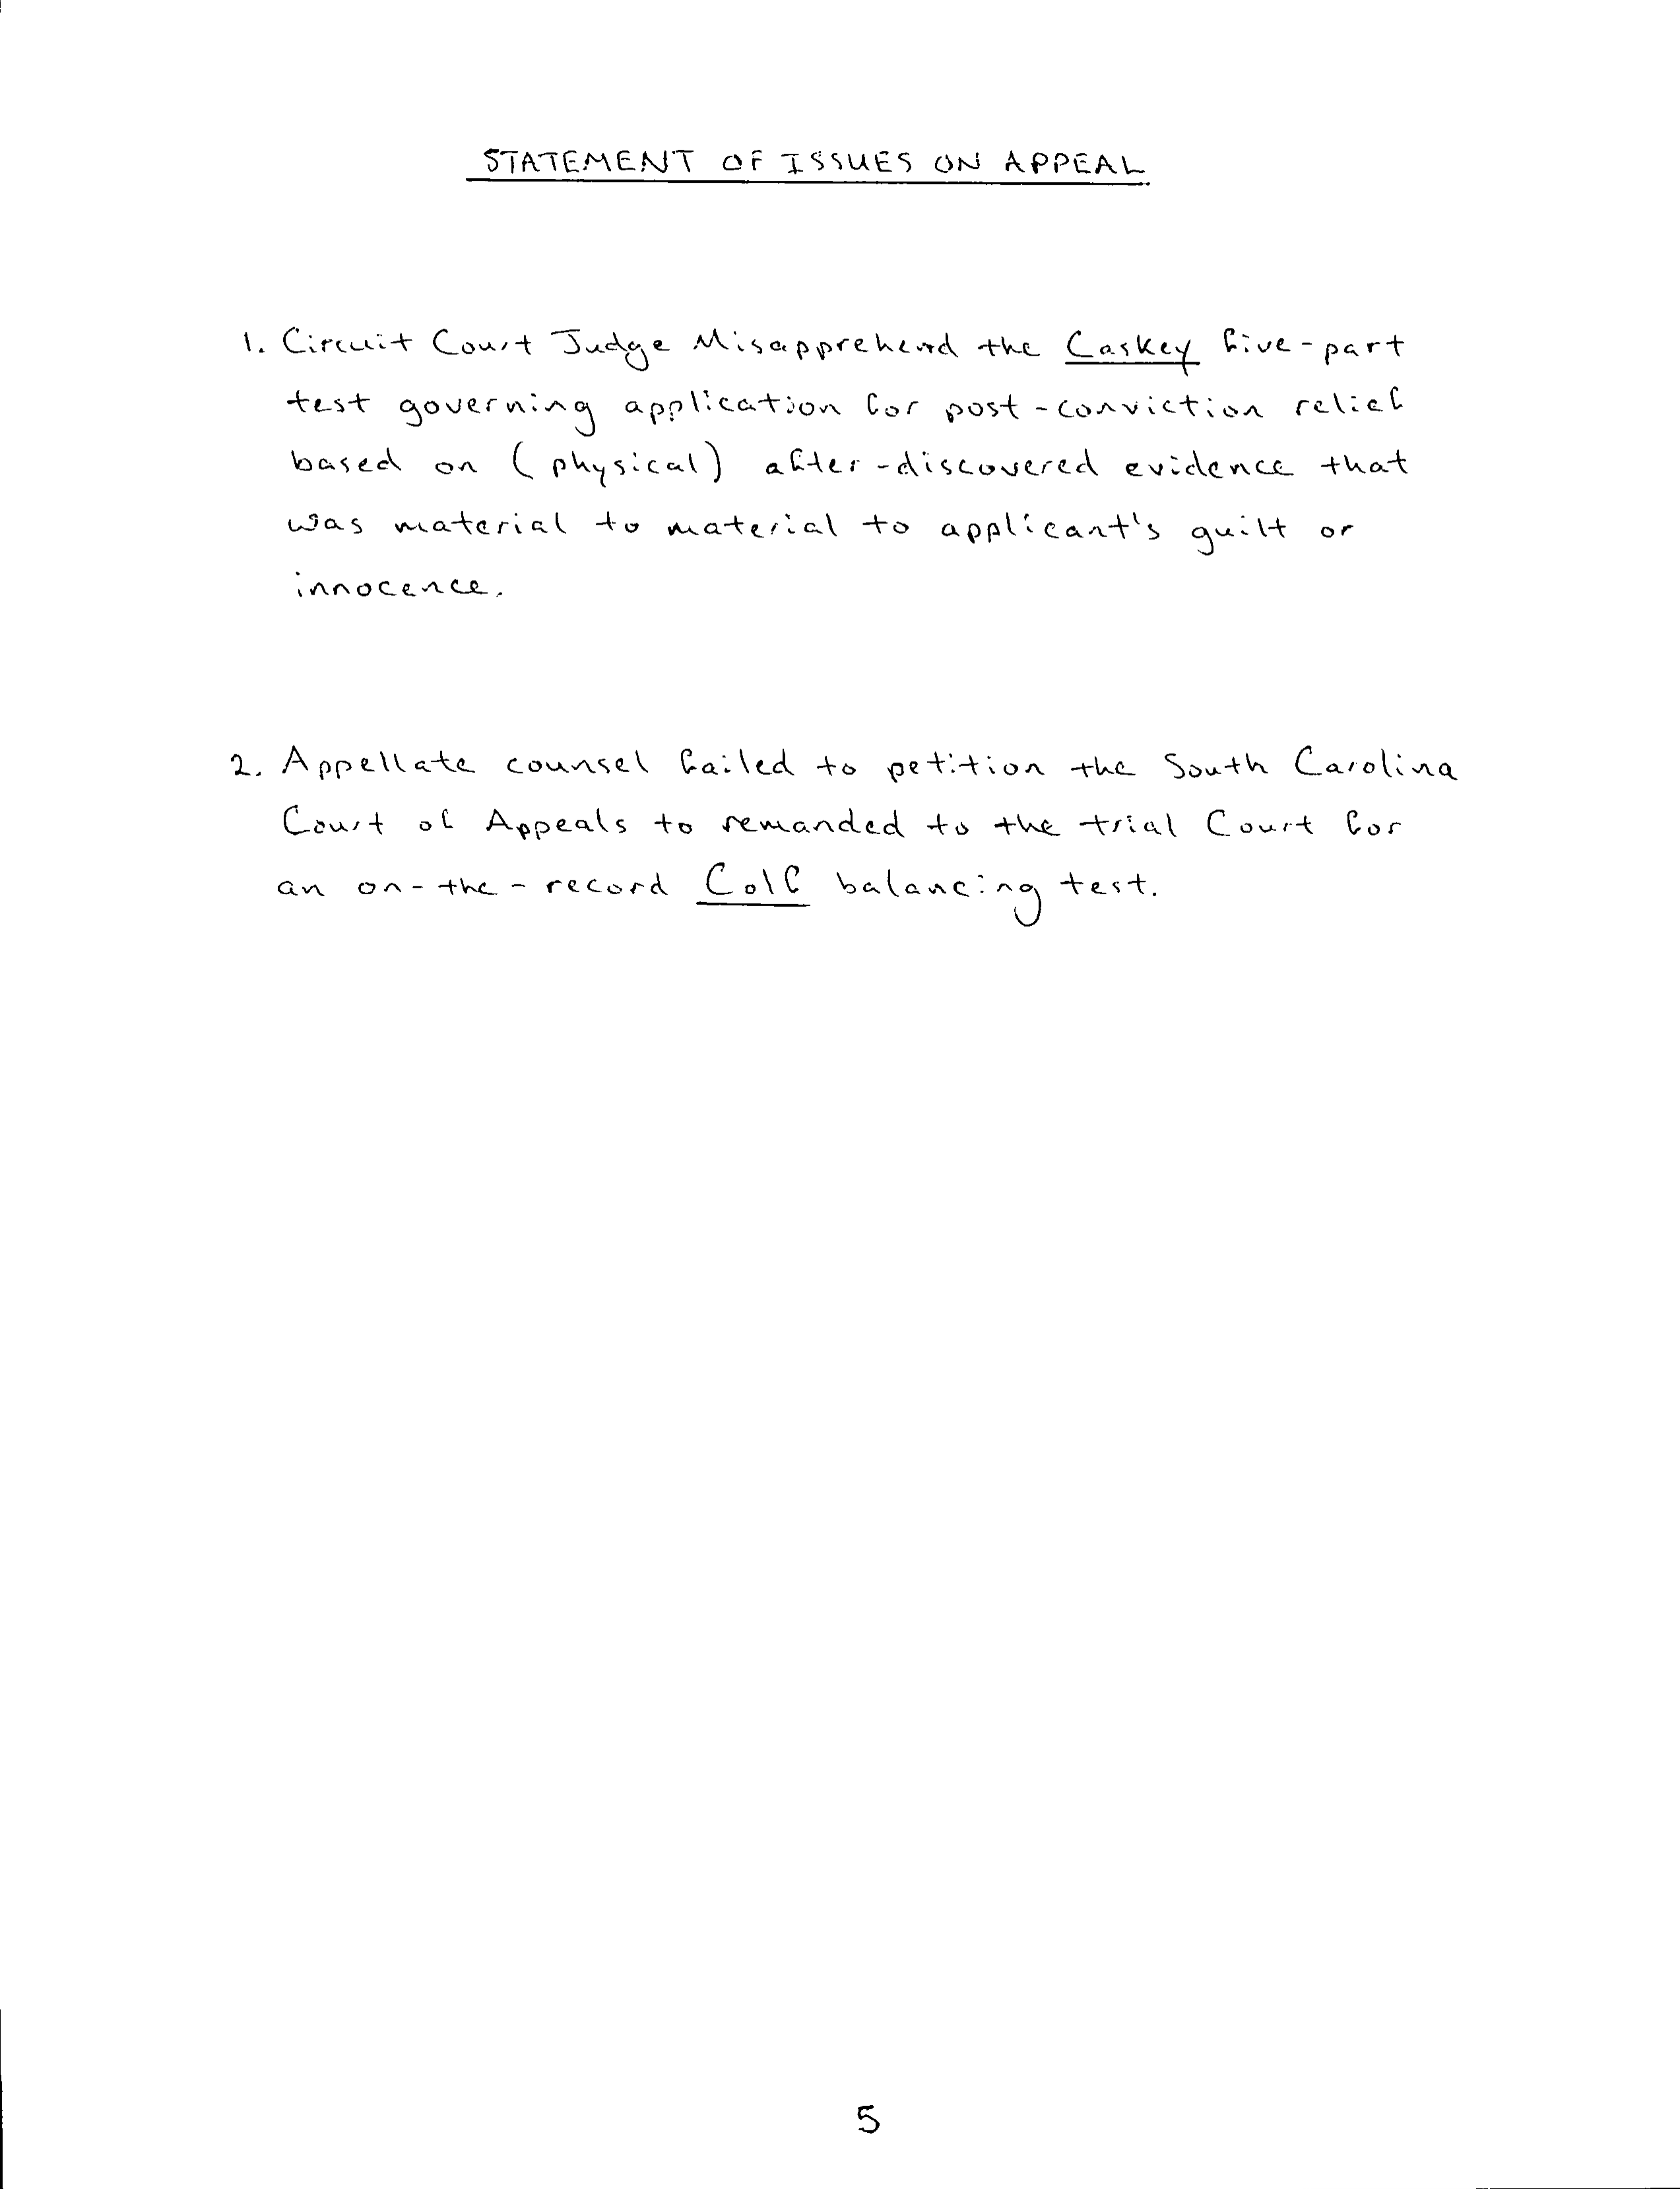 STATEMENT OF ISSUES ON APPEAL
1. Circuit Court Judge Misapprehend the Caskey five-part
test governing application for post-conviction relief
based on (physical) after-discovered evidence that
was material to material to applicant's guilt or
innocence.
2. Appellate counsel failed to petition the South Carolina
Court of Appeals to remanded to the trial Court for
an on-the-record Colf balancing test.
5